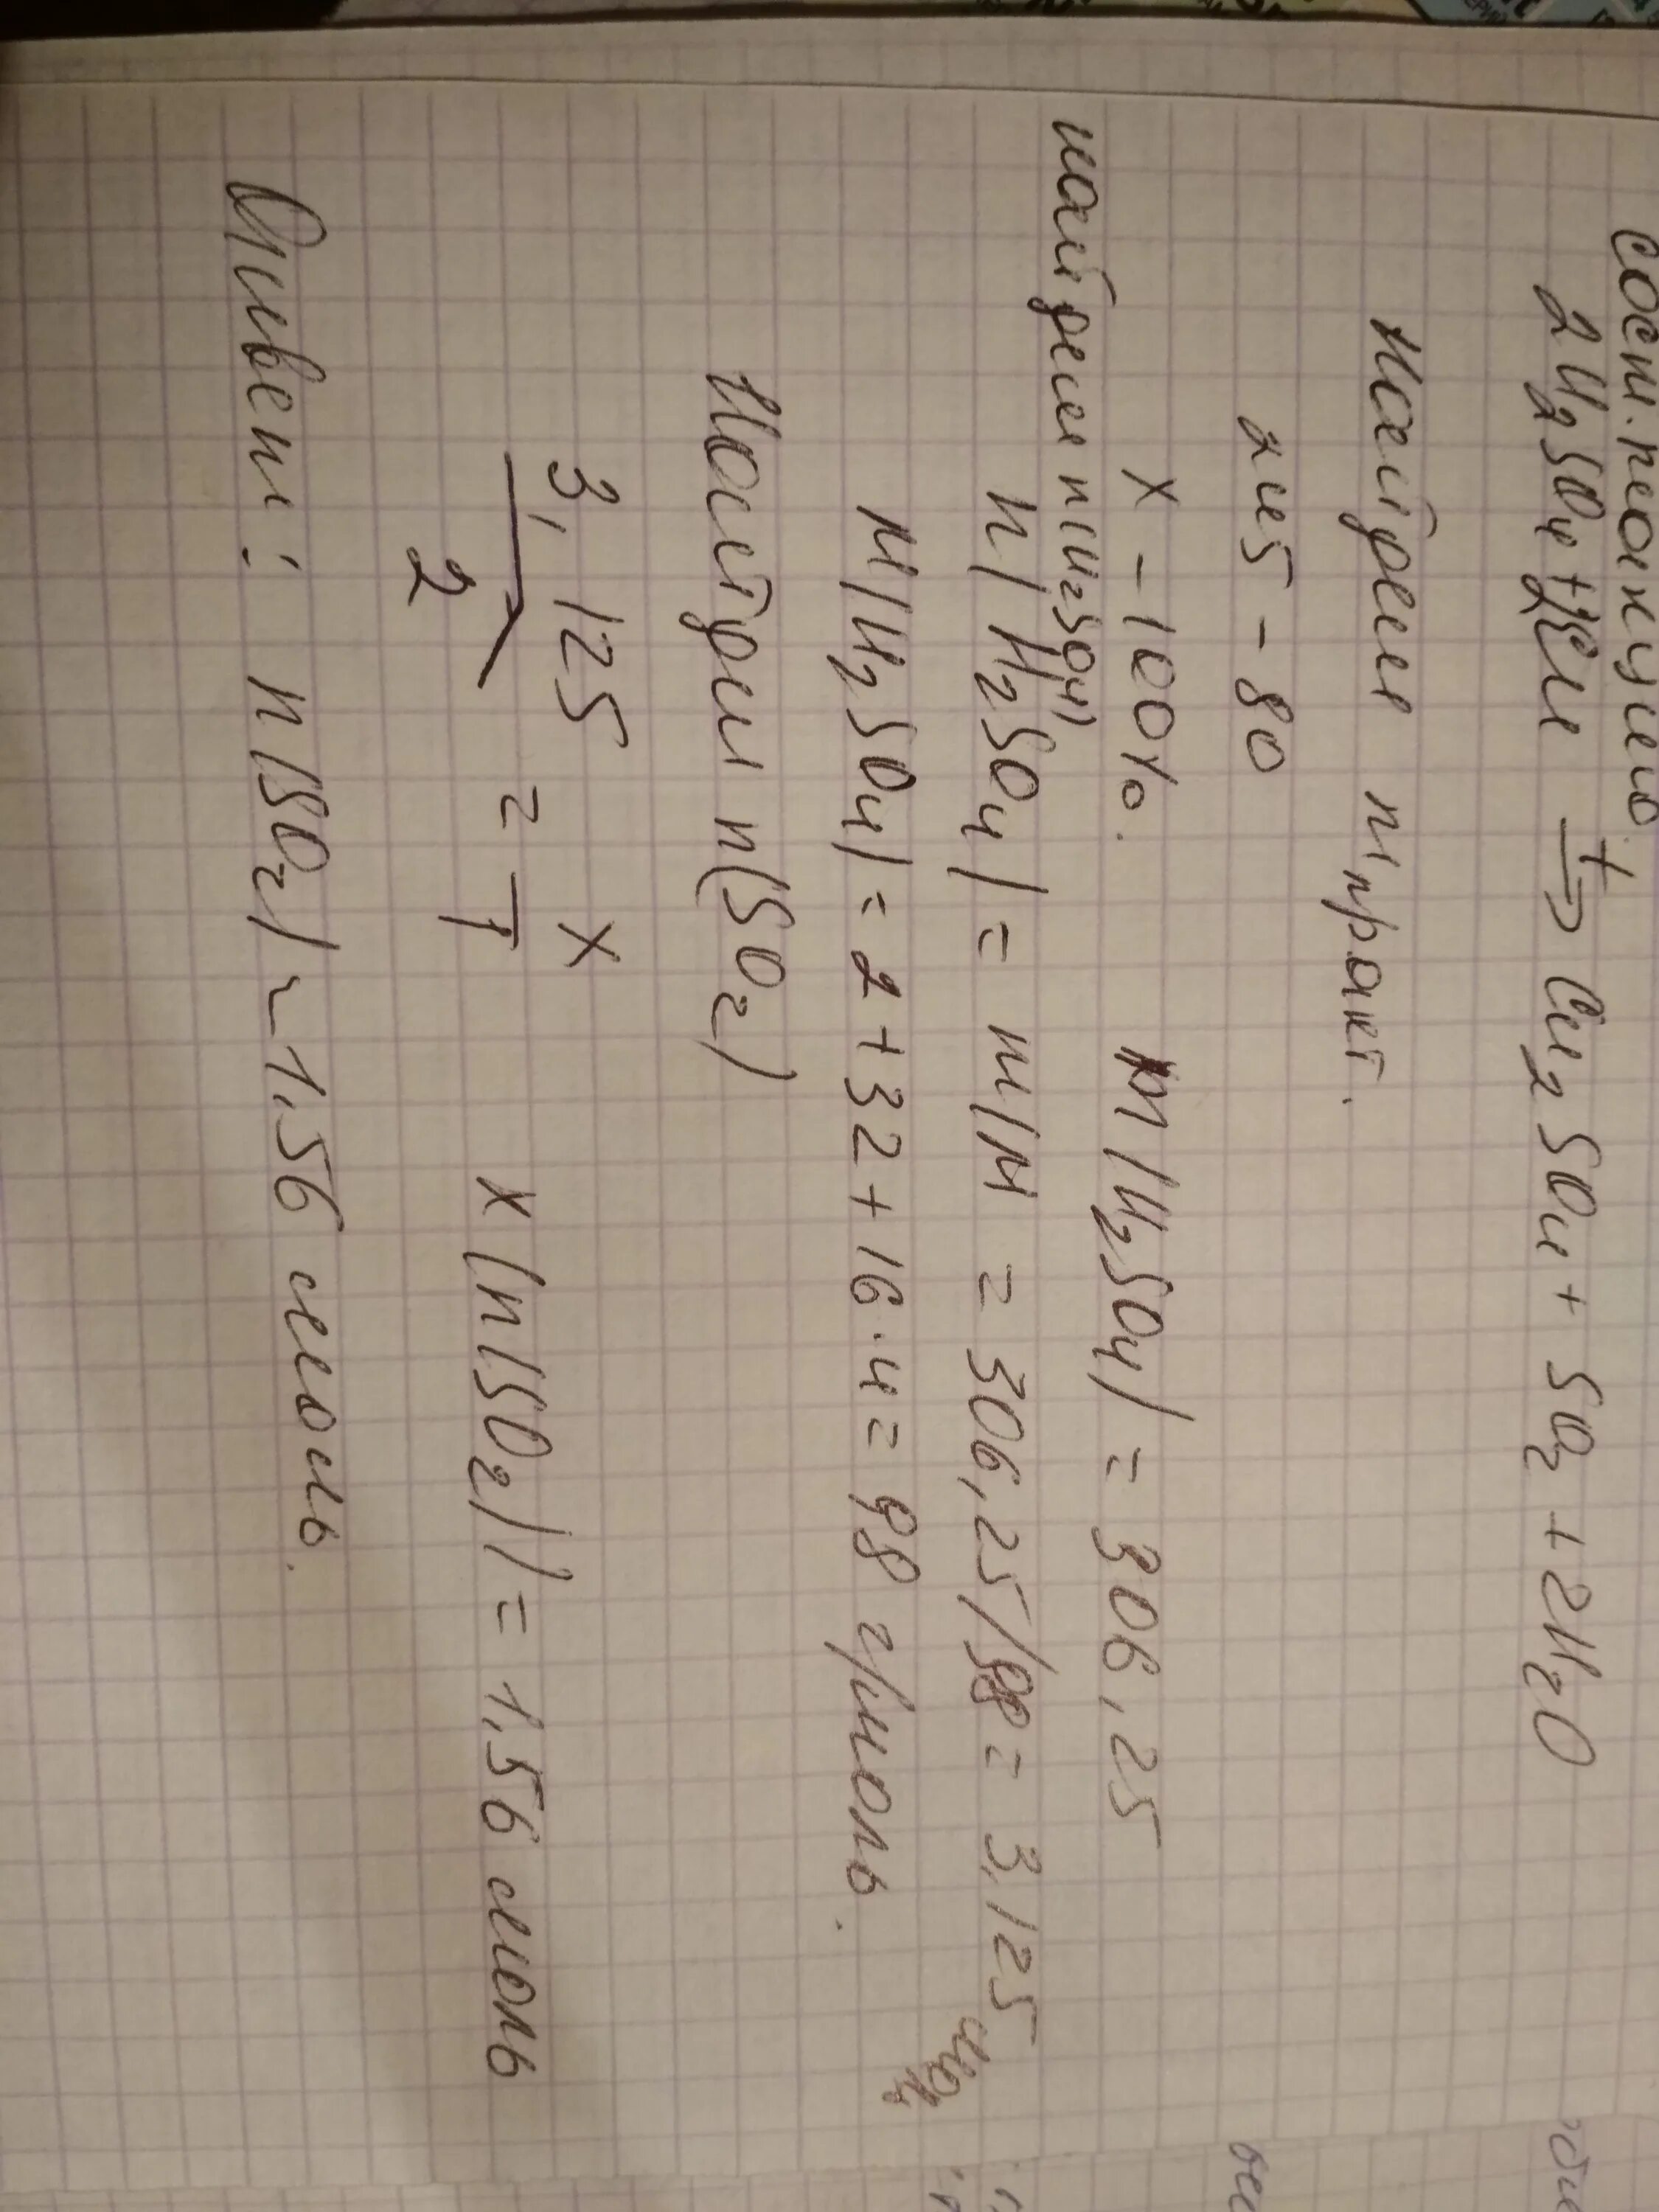 Сост. реакцию.
2H₂SO₄ + 2Cu →t Cu₂SO₄ + SO₂ + 2H₂O
Найдем m практ.
245 - 80
x - 100%. m(H₂SO₄) = 306,25
найдем n(H₂SO₄)
n(H₂SO₄) = m/M = 306,25/98 = 3,125 моль
M(H₂SO₄) = 2 + 32 + 16 · 4 = 98 г/моль.
Найдем n(SO₂)
3,125/2 = x/1 x(n(SO₂)) = 1,56 моль
Ответ: n(SO₂) ~ 1,56 моль.